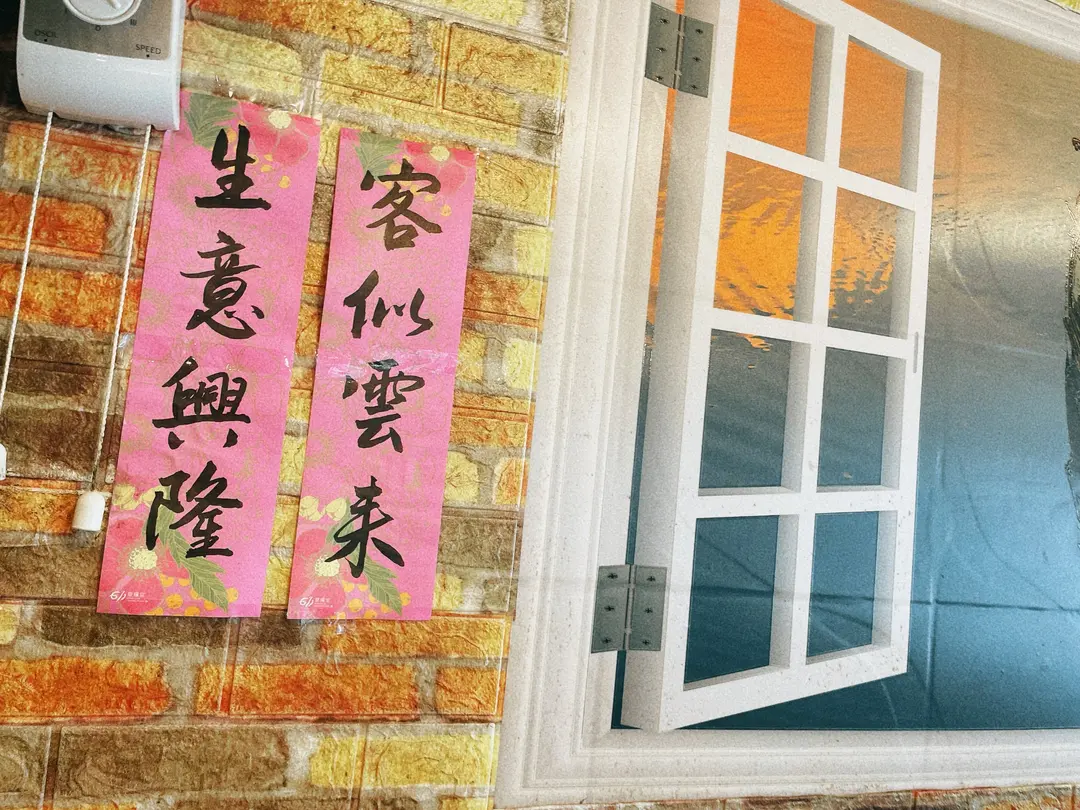 客似雲来
生意興隆
SPEED